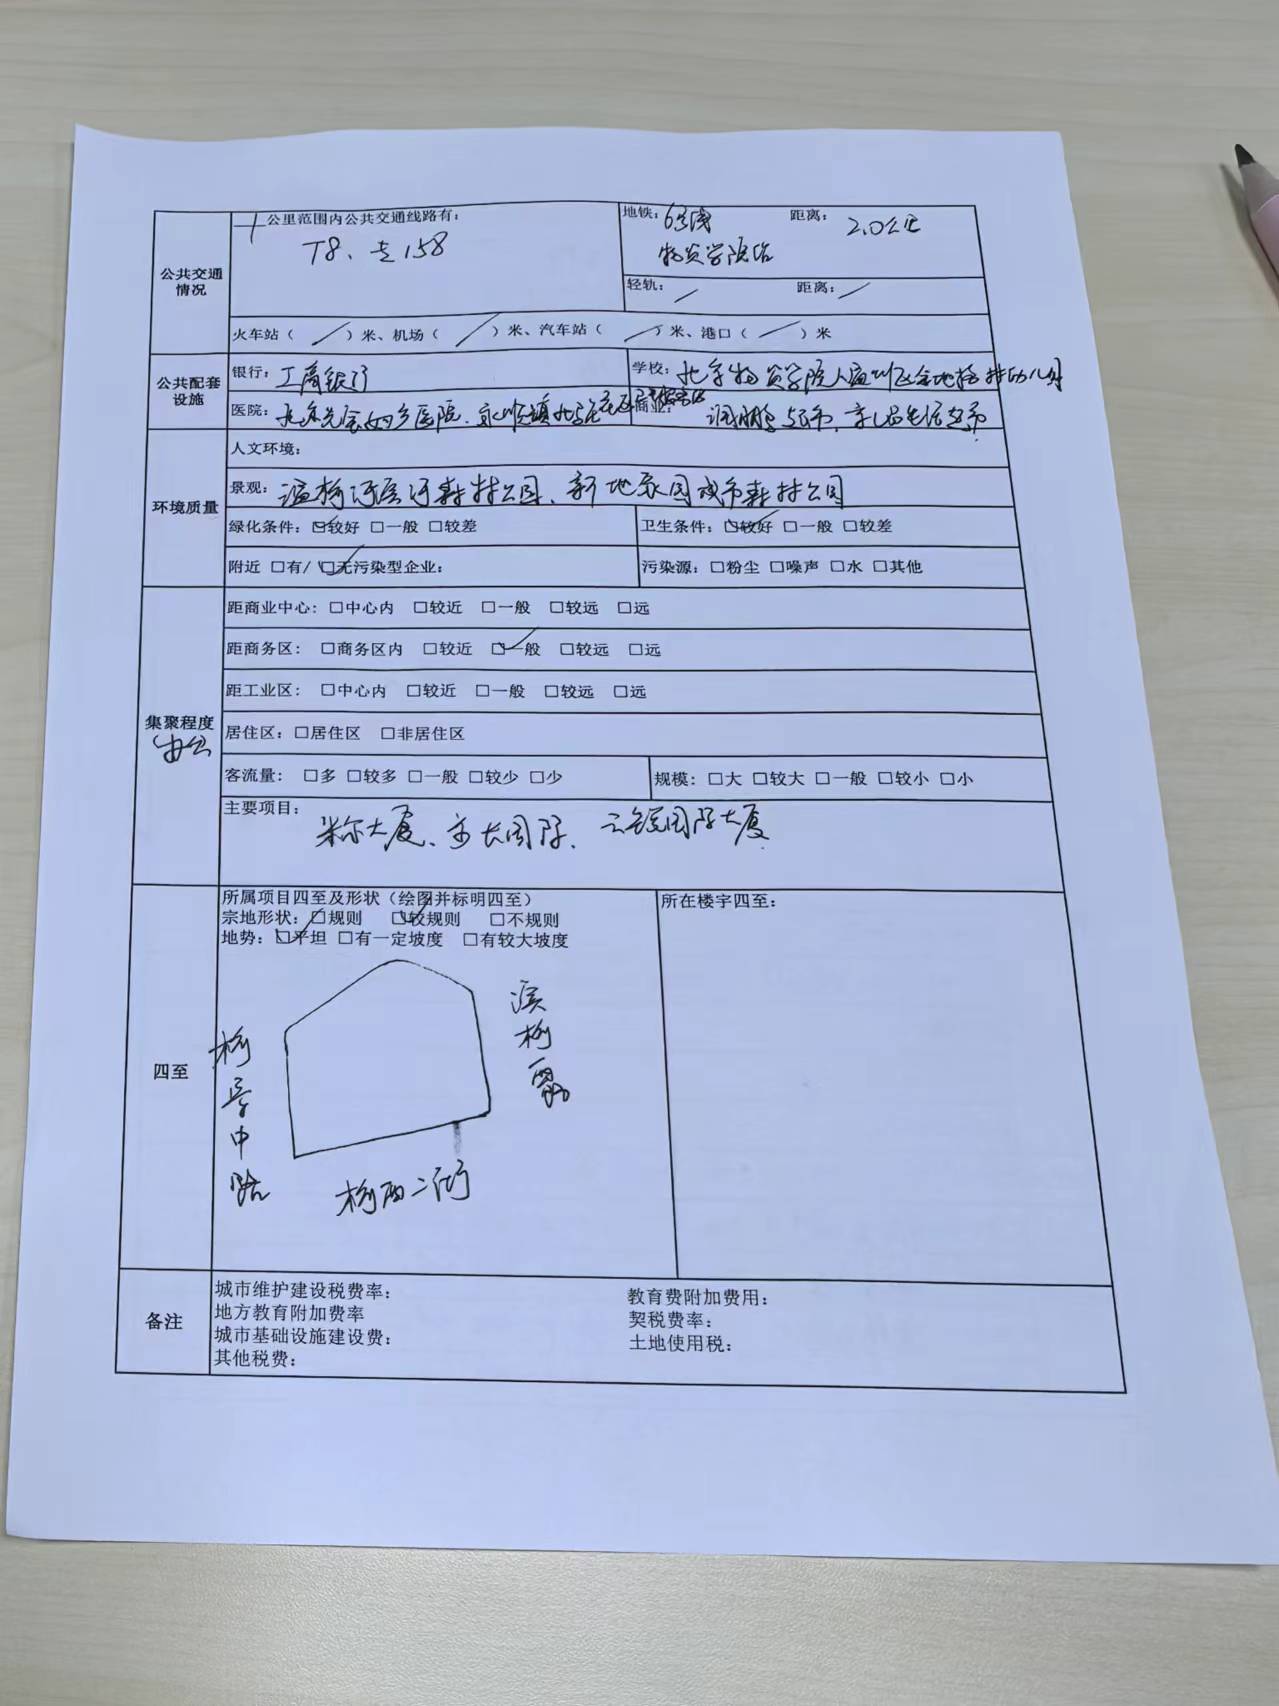 公共交通情况
公里范围内公共交通线路有：
T8、专158
地铁：6号线 物资学院站 距离：2.0公里
轻轨：/ 距离：/
火车站（/）米、机场（/）米、汽车站（/）米、港口（/）米
公共配套设施
银行：工商银行
学校：北京物资学院
医院：永顺镇
商业：超市、生活超市
环境质量
人文环境：
景观：温榆河 森林公园、新地家园城市森林公园
绿化条件：☑较好 □一般 □较差
卫生条件：☑较好 □一般 □较差
附近 □有/☑无污染型企业：
污染源：□粉尘 □噪声 □水 □其他
集聚程度
办公
距商业中心：□中心内 □较近 □一般 □较远 □远
距商务区：□商务区内 □较近 ☑一般 □较远 □远
距工业区：□中心内 □较近 □一般 □较远 □远
居住区：□居住区 □非居住区
客流量：□多 □较多 □一般 □较少 □少
规模：□大 □较大 □一般 □较小 □小
主要项目：米尔大厦、国际、国际大厦
四至
所属项目四至及形状（绘图并标明四至）
宗地形状：☑规则 ☑较规则 □不规则
地势：☑平坦 □有一定坡度 □有较大坡度
所在楼宇四至：
滨榆西路
榆景中路
榆西二街
备注
城市维护建设税费率：
教育费附加费用：
地方教育附加费率
契税费率：
城市基础设施建设费：
土地使用税：
其他税费：